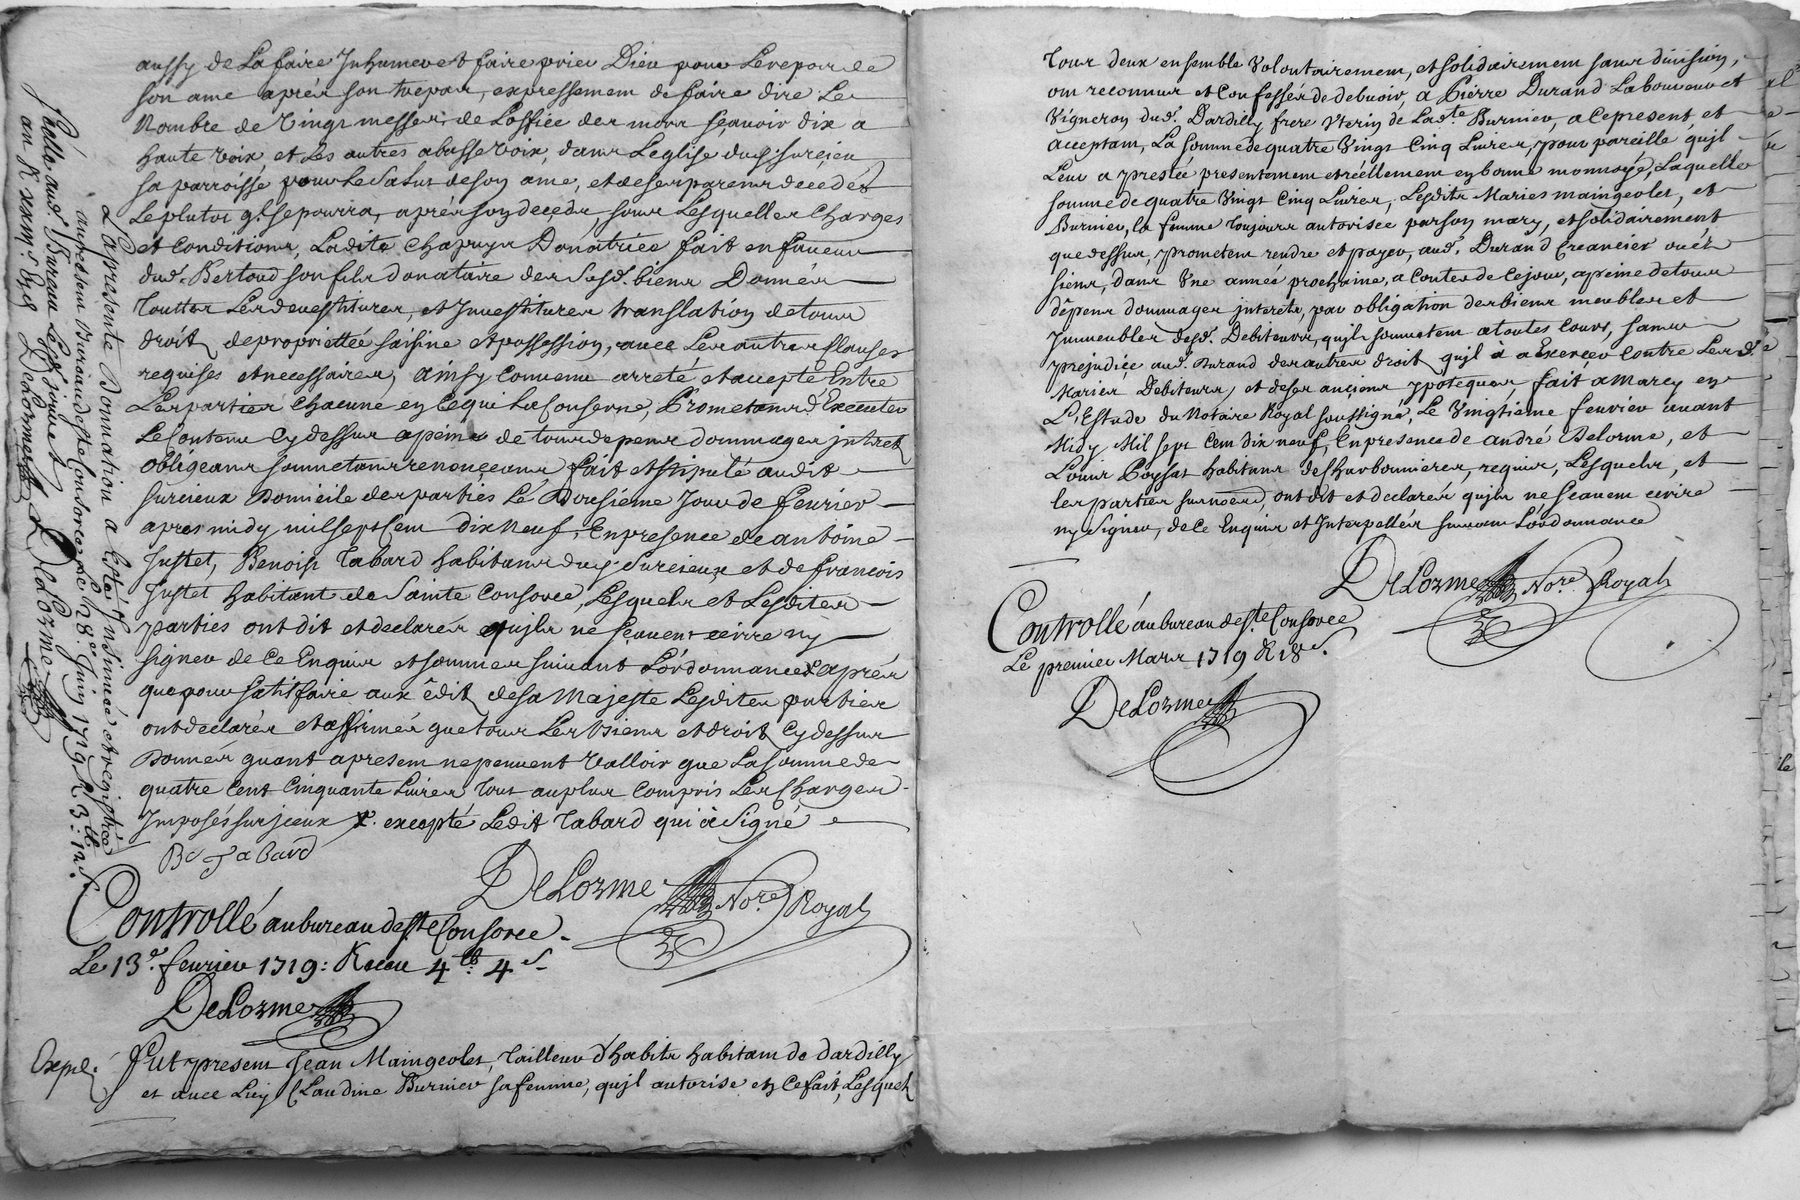 aussy de La faire Inhumer et faire prier Dieu pour Le repos de
son ame aprés son trepas, expressement de faire dire Le
Nombre de Vingt messes de L'office des morts sçavoir dix a
haute voix, et Les autres a basse voix, dans L'eglise dud. Surcieu
sa parroisse pour Le Salut de son ame, et de ses parens decedés
Le plutot q'l se pourra, aprés son decedz, sous Lesquelles Charges
et Conditions, Ladite Chapuys Donatrice fait en faueur
dud. Bertoud son fils donataire des Susd. biens Donnés
Touttes Les deuestitures, et Inuestitures translation de tous
droits de proprietteé saisine et possession, auec Les autres Clauses
requises et necessaires, Ainsy Conuenu arreté et accepté Entre
Les parties Chacune en Ce qui La Conserne, Prometans d'Executer
Le Contenu Cy dessus a peine de tous depens dommages jntretz
obligeans soumetans renonçeans, fait et stipulé audit
Surcieux Domicile des parties Le Dousiéme Jour de feurier
apres midy mil sept Cent Dix Neuf, En presence de antoine
Justet, Benoist Tabard habitans dud. Surcieux et de francois
Justet habitant de Sainte Consorce, Lesquels et Lesdites
parties ont dit et declarér qujls ne sçauent ecrire ny
signer de Ce Enquis et sommes suiuant L'ordonnance X aprés
que pour satisfaire aux édits de sa Majeste Lesdites parties
ont declarér et affirmér que tous Les biens et droits Cy dessus
Donnés quant a present ne peuuent Valloir que La somme de
quatre Cent Cinquante Liures tout au plus Compris Les Charges
Imposés sur jceux X. excepté Ledit Tabard qui à Signé
Be Tabard
DeLorme Nore. Royal
Controllé au bureau de Ste Consorce
Le 13e. feurier 1719: Receu 4lb: 4s
DeLorme
Expié. Fut present Jean Maingeolet, Tailleur d'habits habitant de dardilly
et auec Luy Claudine Burnier sa femme, qujl autorise en Ce fait, Lesquels
La presente Donnation a Esté Insinueé et registreé
au present Bureau de Ste Consorce Ce 28e Juin 1719 R 3: 12s.
DeLorme
Tous deux ensemble Volontairement, et solidairement sans diuision,
ont reconnus et Confessér de debuoir, a Pierre Durand Laboureur et
Vigneron dud. Dardilly frere Vterin de Lad.te Burnier, a Ce present et
acceptant, La somme de quatre Vingt Cinq Liures, pour pareille qujl
Leur a prestéé presentement et réellement en bonne monnoyé, Laquelle
somme de quatre Vingt Cinq Liures, Lesdits Mariés maingeolet, et
Burnier, la femme toujours autorisée par son mary, et solidairement
que dessus, prometent rendre et payer, aud. Durand Creancier ou és
siens, dans Vne année prochaine, a Conter de Ce jour, a peine de tous
dépens dommages interets, par obligation des biens meubles et
Immeubles desd. Debiteurs, qujls soumetent a toutes Cours, sans
prejudice aud. Durand des autres droits qujl à a Exercer Contre Les d.
Mariés Debiteurs, et de ses ançiens ypoteques, fait a Marcy en
L'Estude du Notaire Royal soussigné, Le Vingtième feurier auant
Midy, Mil sept Cent dix neuf, En presence de andré Delorme, et
Louis Poyssat habitans de Charbonnieres, requis, Lesquels, et
les parties surnoées, ont dit et declarér qujls ne sçauent ecrire
ny signer, de Ce Enquis et Interpellés suiuant L'ordonnance
DeLorme Nore. Royal
Controllé au bureau de Ste Consorce
Le premier Mars 1719 R 18s.
DeLorme